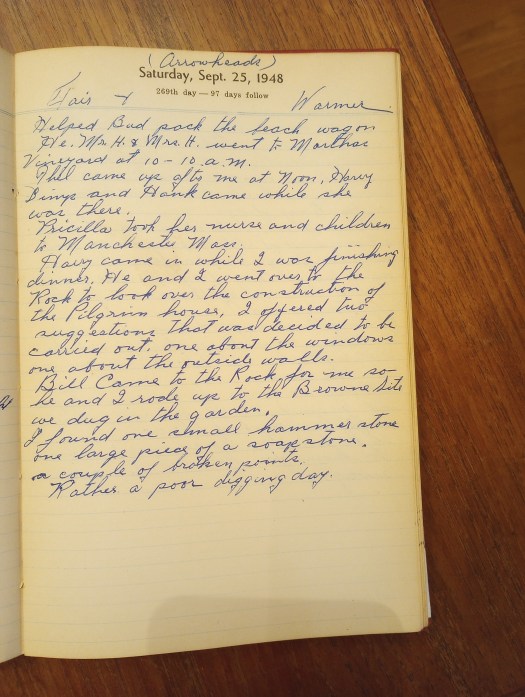 (Arrowheads)
Saturday, Sept. 25, 1948
269th day — 97 days follow
Fair & Warmer
Helped Bud pack the beach wagon
He, Mr H. & Mrs. H. went to Marthas
Vineyard at 10-10 a.m.
Phil came up after me at noon, Harry
Dimp and Hank came while she
was there.
Pricilla took her nurse and children
to Manchester, Mass.
Harry came in while I was finishing
dinner. He and I went over to the
Rock to look over the construction of
the Pilgrim house, I offered two
suggestions that was decided to be
carried out. one about the windows
one about the outside walls.
Bill Came to the Rock for me so
he and I rode up to the Browne Site
we dug in the garden.
I found one small hammer stone
one large piece of a soapstone.
a couple of broken points.
Rather a poor digging day.